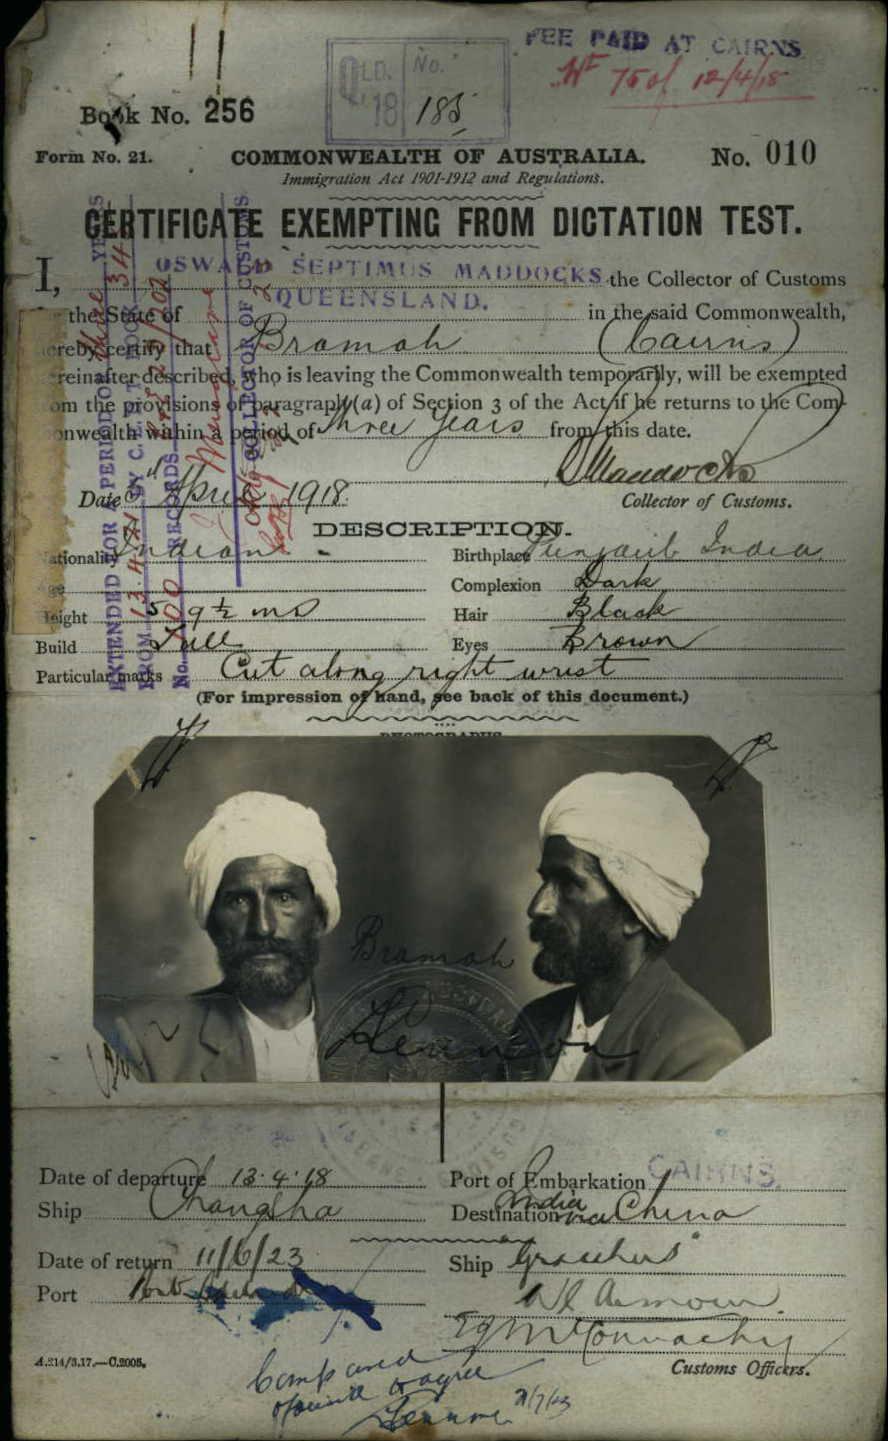 FEE PAID AT CAIRNS
12/4/18
QLD. No.
'18 185
Book No. 256
Form No. 21. COMMONWEALTH OF AUSTRALIA. No. 010
Immigration Act 1901-1912 and Regulations.
CERTIFICATE EXEMPTING FROM DICTATION TEST.
I, OSWALD SEPTIMUS MADDOCKS the Collector of Customs
the State of QUEENSLAND. in the said Commonwealth,
ereby certify that Bramah (Cairns)
ereinafter described, who is leaving the Commonwealth temporarily, will be exempted
om the provisions of paragraph (a) of Section 3 of the Act if he returns to the Com-
onwealth within a period of Three Years from this date.
Date April 1918.
Collector of Customs.
EXTENDED FOR A PERIOD OF YEARS
FROM 13.4.21 BY C. & T.
No. RECORDS
COLLECTOR OF CUSTOMS
DESCRIPTION.
ationality Indian Birthplace Punjaub India
ge Complexion Dark
eight 5 9½ ins Hair Black
Build Tall Eyes Brown
Particular marks Cut along right wrist
(For impression of hand, see back of this document.)
PHOTOGRAPHS
Bramah
Date of departure 13.4.18 Port of Embarkation CAIRNS.
Ship Changsha Destination India via China
Date of return 11/6/23 Ship
Port
Customs Officers.
A.214/3.17.—C.2005.
Compared
found to agree